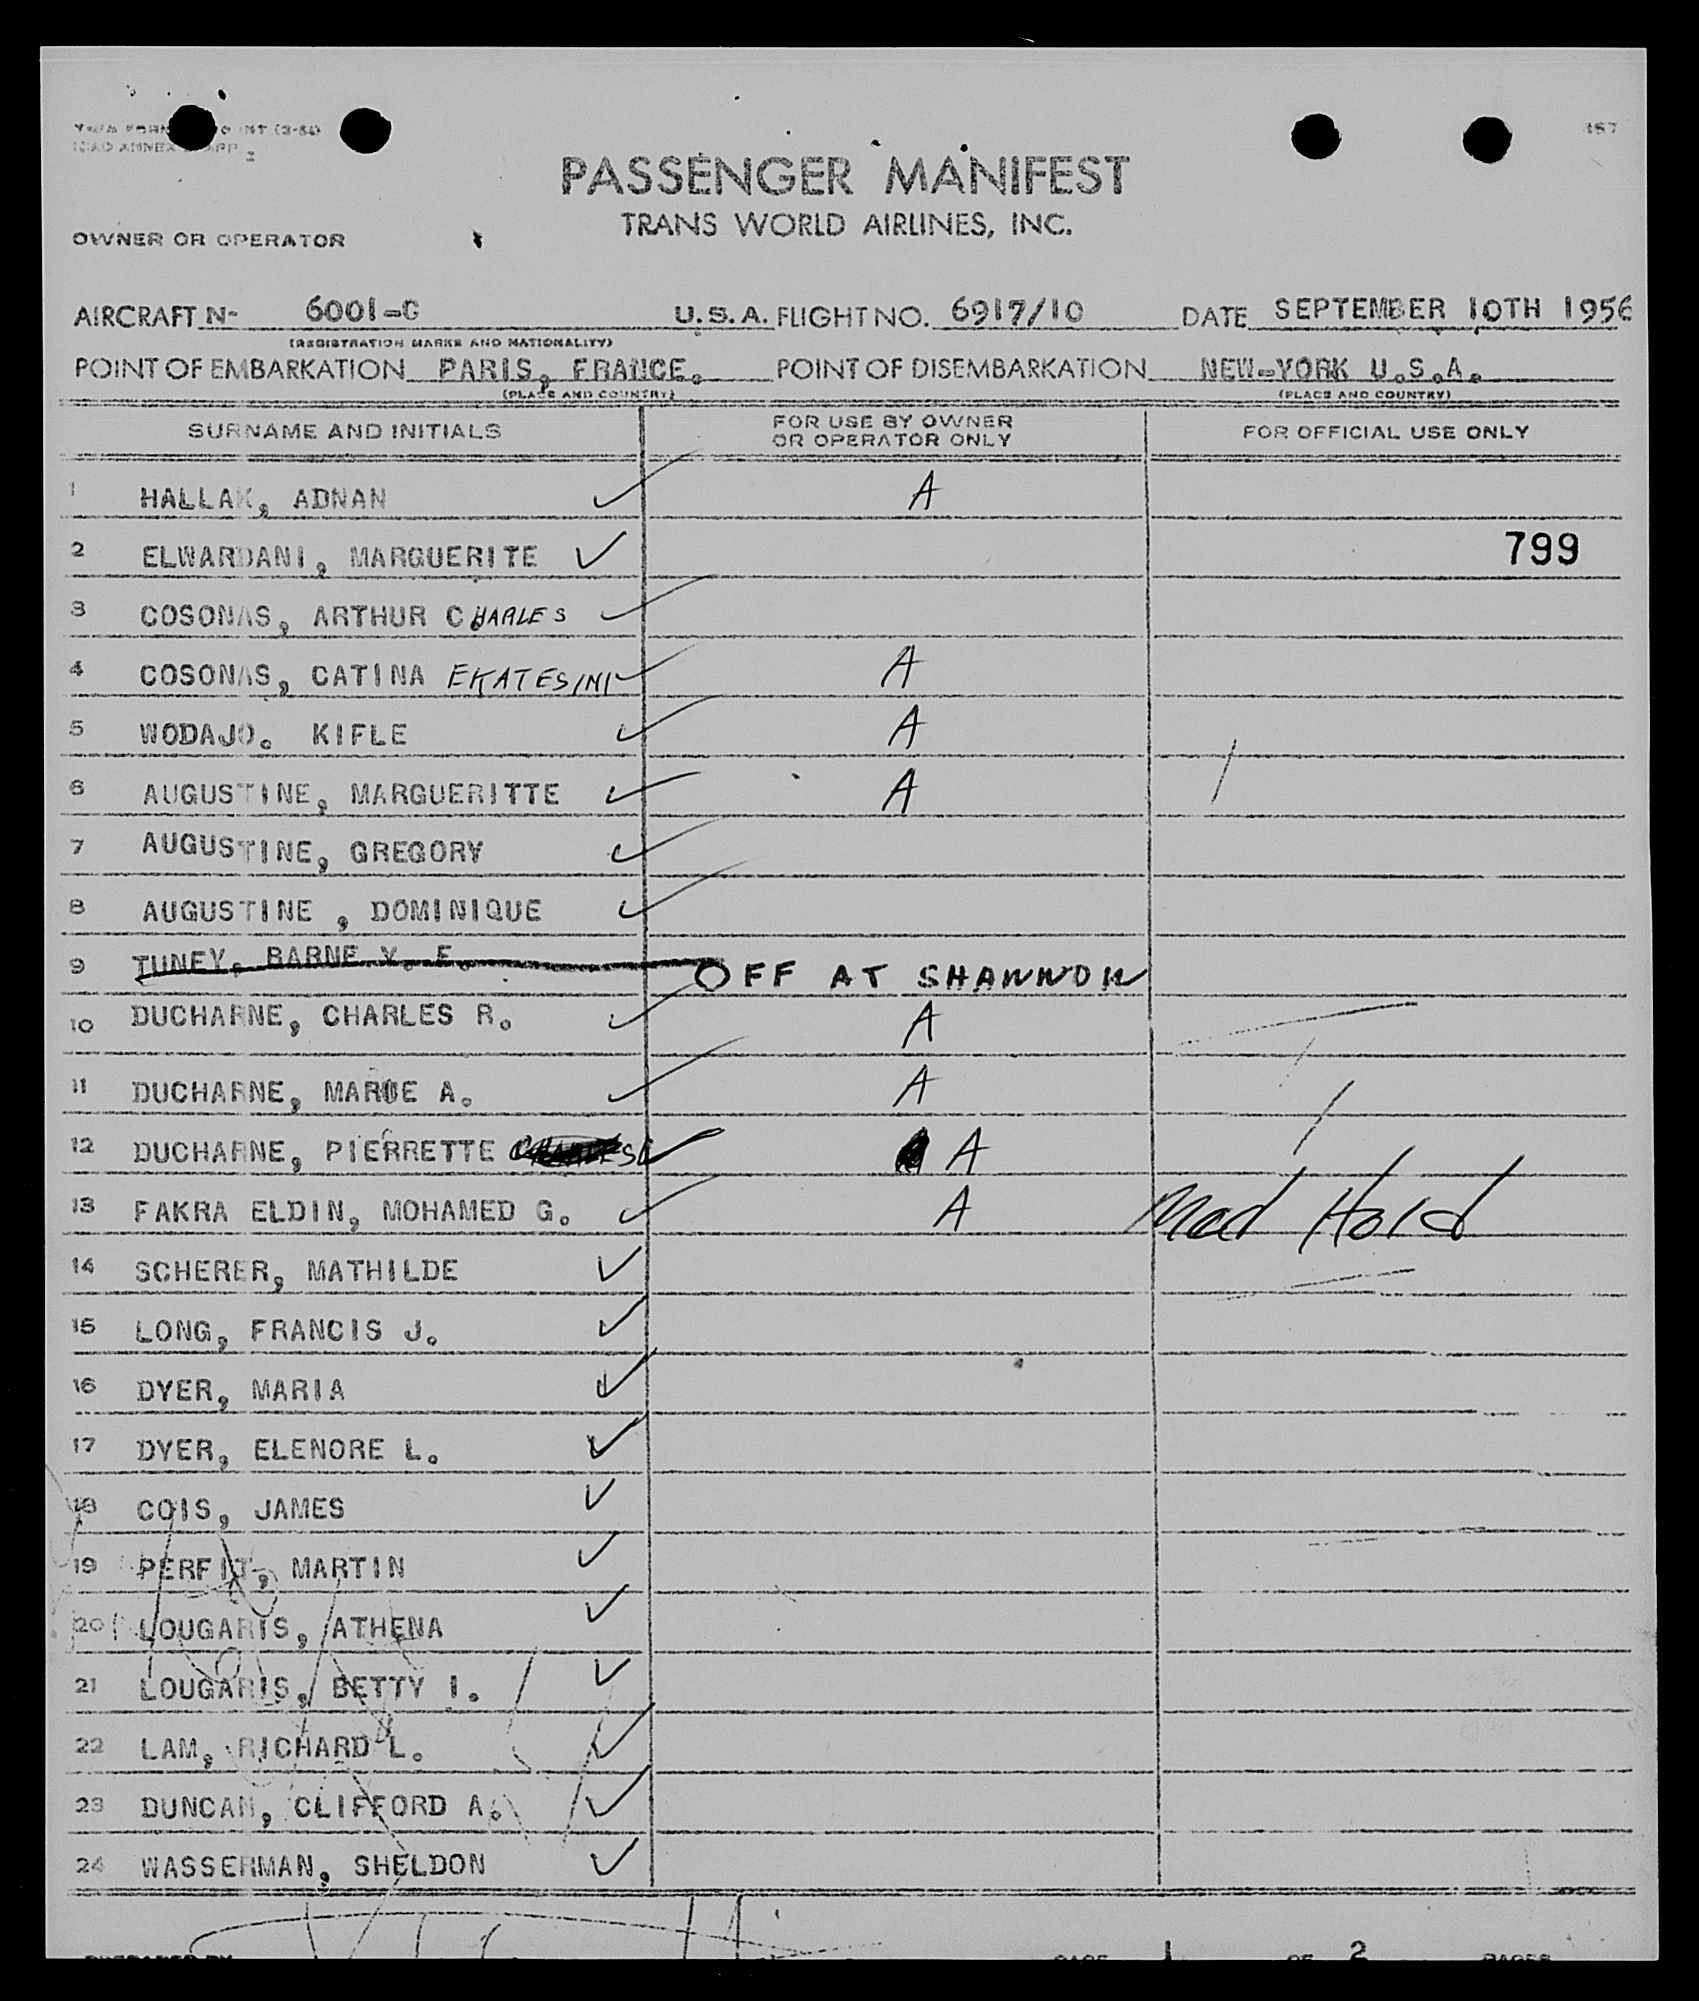 457
PASSENGER MANIFEST
TRANS WORLD AIRLINES, INC.
OWNER OR OPERATOR
AIRCRAFT N- 6001-C U.S.A. FLIGHT NO. 6917/10 DATE SEPTEMBER 10TH 1956
(REGISTRATION MARKS AND NATIONALITY)
POINT OF EMBARKATION PARIS, FRANCE. POINT OF DISEMBARKATION NEW-YORK U.S.A.
(PLACE AND COUNTRY) (PLACE AND COUNTRY)
SURNAME AND INITIALS FOR USE BY OWNER OR OPERATOR ONLY FOR OFFICIAL USE ONLY
1 HALLAK, ADNAN A
2 ELWARDANI, MARGUERITE 799
3 COSONAS, ARTHUR CHARLES
4 COSONAS, CATINA EKATESINI A
5 WODAJO. KIFLE A
6 AUGUSTINE, MARGUERITTE A
7 AUGUSTINE, GREGORY
8 AUGUSTINE , DOMINIQUE
9 TUNEY. BARNE Y. E. OFF AT SHANNON
10 DUCHARNE, CHARLES R. A
11 DUCHARNE, MARIE A. A
12 DUCHARNE, PIERRETTE A
13 FAKRA ELDIN, MOHAMED G. A Med Hold
14 SCHERER, MATHILDE
15 LONG, FRANCIS J.
16 DYER, MARIA
17 DYER, ELENORE L.
18 COIS, JAMES
19 PERFIT, MARTIN
20 LOUGARIS, ATHENA
21 LOUGARIS, BETTY I.
22 LAM, RICHARD L.
23 DUNCAN, CLIFFORD A.
24 WASSERMAN, SHELDON
PREPARED BY PAGE 1 OF 2 PAGES